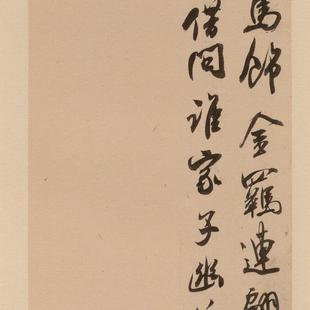 馬飾金羈連翩
借問誰家子幽并